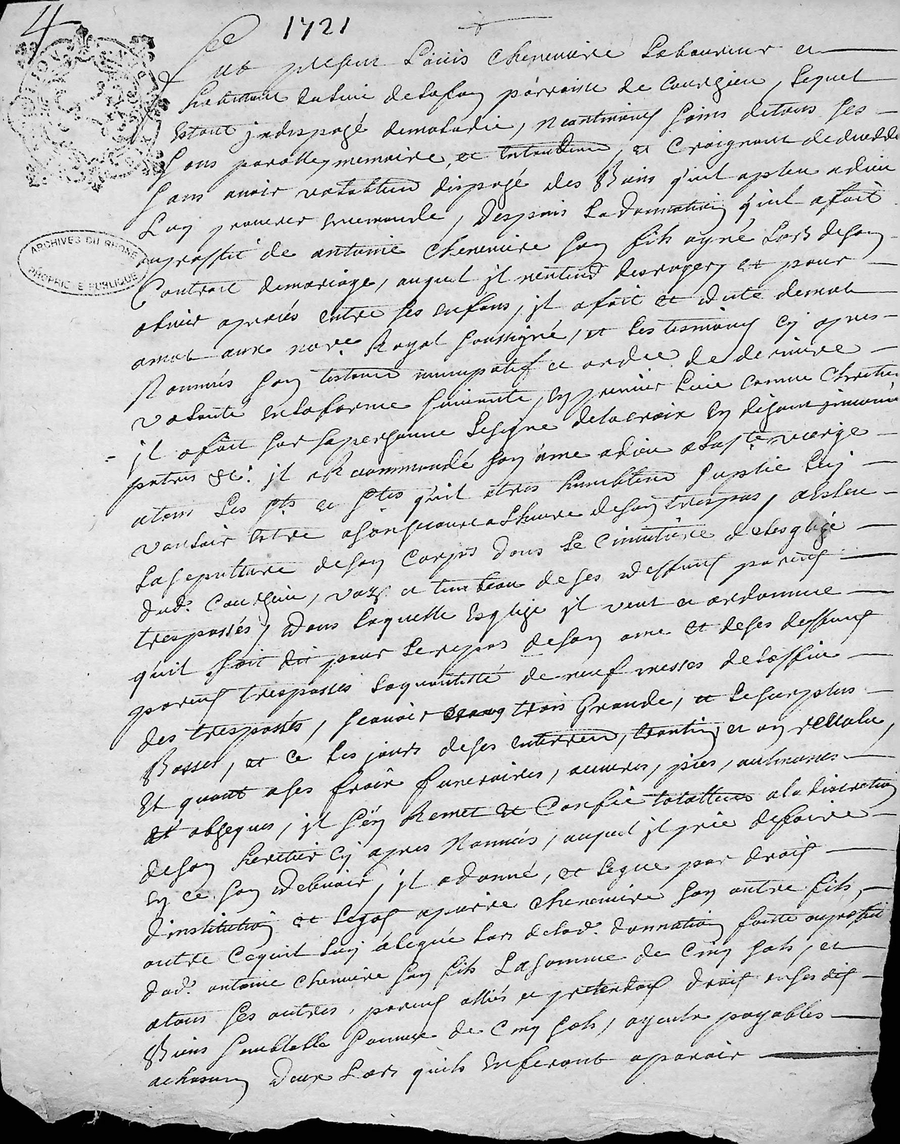 4
1721
ARCHIVES DU RHONE
PROPRIÉTÉ PUBLIQUE
fut present Louis Chenevière Laboureur et
habitant parroisse de Courzieu, lequel
Estant indisposé demaladie, neantmoins sains detous ses
sens parolle, memoire et Entendem, et Craignant dedeceder
sans avoir disposé des Biens qu'il apleu adieu
Luy Encemonde, Despuis Ladonnation qu'il afait
auproffit de antoine Chenevière son fils ayné Lors deson
Contrait demariage, auquel jl n'entend desroger, et pour
entre ses enfans, jl afait et dicté demot
amot aux no.re Royal soussigné, et Les tesmoins cy apres
Nommés son testament nuncupatif et ordre de derniere
volonté Enlaforme suivante, En premier Lieu comme Chretien
jl afait sur sapersonne Lesigne delacroix En disant
patris &c. jl aRecommandé son ame adieu alaste vierge
atous Les sts et stes qu'il atres humblem supplié luy
vouloir Estre alheure deson trespas, aesleu
Lasepulture deson Corps dans Le Cimetière delesglise
dud. Courzieu, et tumbeau deses deffunts parens
trespassés, Dans Laquelle Esglise jl veut et ordonne
quil soit dit pour Lerepos deson ame et deses deffuns
parens trespassés Laquantitté de neuf messes deLoffice
des trespassés, sçavoir trois Grande, et Lesurplus
Basses, et ce Les jours deses enterrem, et an revollu,
Et quant ases frais funeraires, œuvres, pies, aulmones
et obseques, jl s'en Remet et Confie totallem aladiscretion
deson heritier Cy apres Nommés, auquel jl prie defaire
En ce son debvoir, jl adonné, et Legue par droit
d'institution et Legat apierre chenevière son autre fils,
outre Cequil Luy alegué Lors delad. donnation faitte auproffit
dud. antoine Chenevière son fils Lasomme de Cinq sols, et
atous ses autres, parens alliés et pretendans droits ensesdits
Biens semblable somme de Cinq sols, payables
achascun Deux Lors qu'ils enferont aparoir